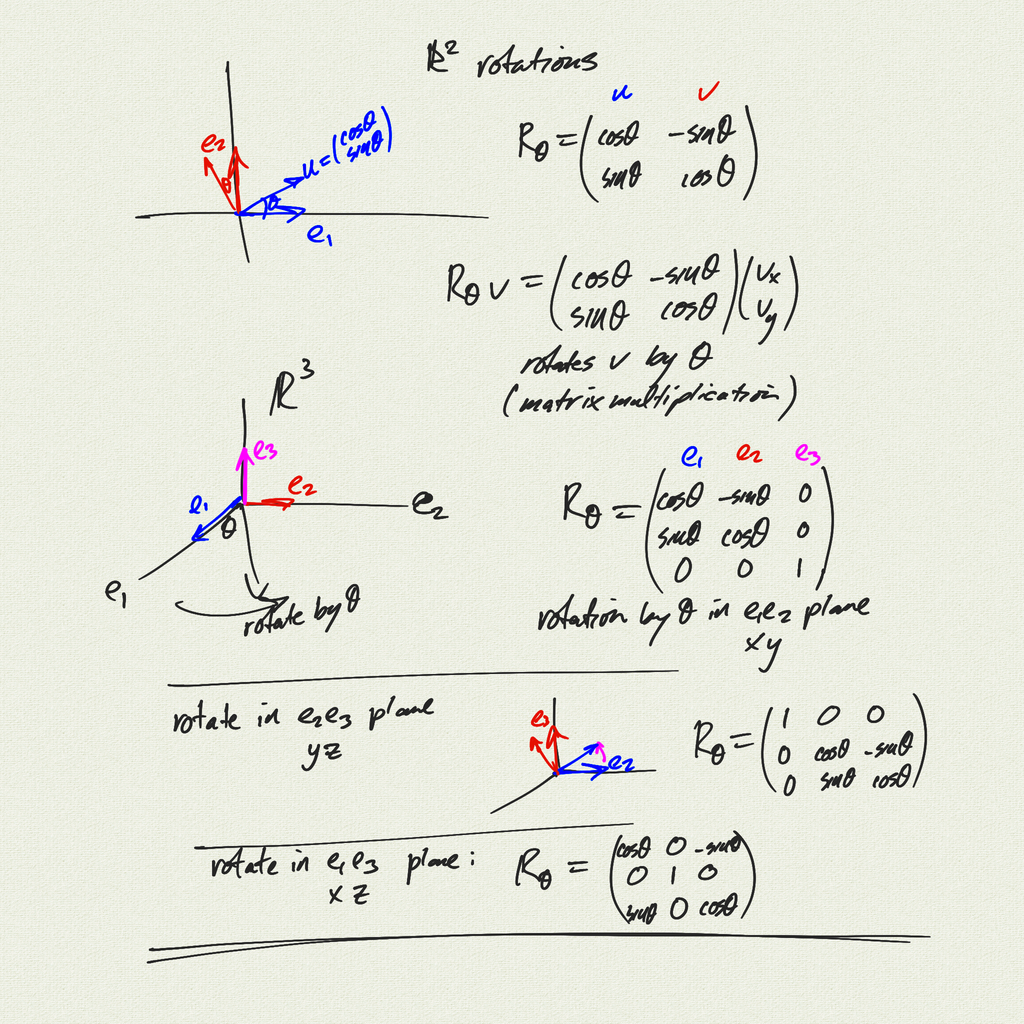 ℝ² rotations
u v
R_θ = (cosθ -sinθ
sinθ cosθ)
e₂
θ
u = (cosθ
sinθ)
θ
e₁
R_θ v = (cosθ -sinθ
sinθ cosθ) (v_x
v_y)
rotates v by θ
(matrix multiplication)
ℝ³
e₃
e₁ e₂ e₂
θ
e₁
rotate by θ
e₁ e₂ e₃
R_θ = (cosθ -sinθ 0
sinθ cosθ 0
0 0 1)
rotation by θ in e₁e₂ plane
xy
rotate in e₂e₃ plane
yz
e₃
e₂
R_θ = (1 0 0
0 cosθ -sinθ
0 sinθ cosθ)
rotate in e₁e₃ plane:
xz
R_θ = (cosθ 0 -sinθ
0 1 0
sinθ 0 cosθ)